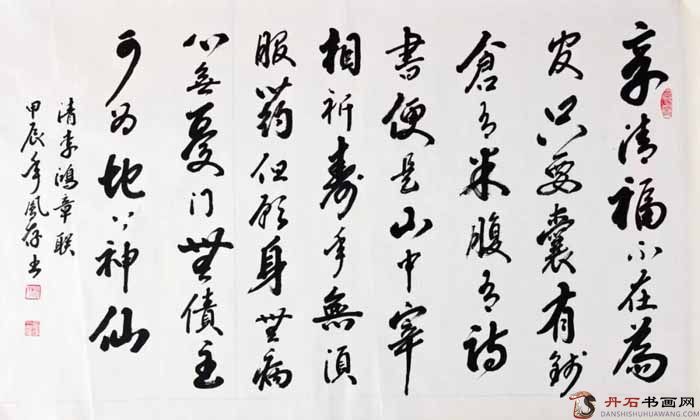 享清福不在為
官只要囊有錢
倉有米腹有詩
書便是山中宰
相祈壽年無須
服葯但願身無病
心無憂門無債主
可為地上神仙
清李鴻章联
甲辰年風书
丹石书画网
DANSHISHUHUAWANG.COM